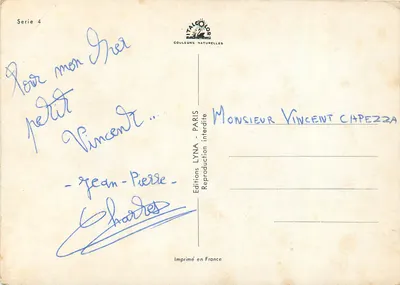 Serie 4
ITALCOLOR
COULEURS NATURELLES
Pour mon cher
petit
Vincent...
- Jean-Pierre -
Charles
Editions LYNA - PARIS
Reproduction interdite
MONSIEUR VINCENT CAPEZZA
Imprimé en France